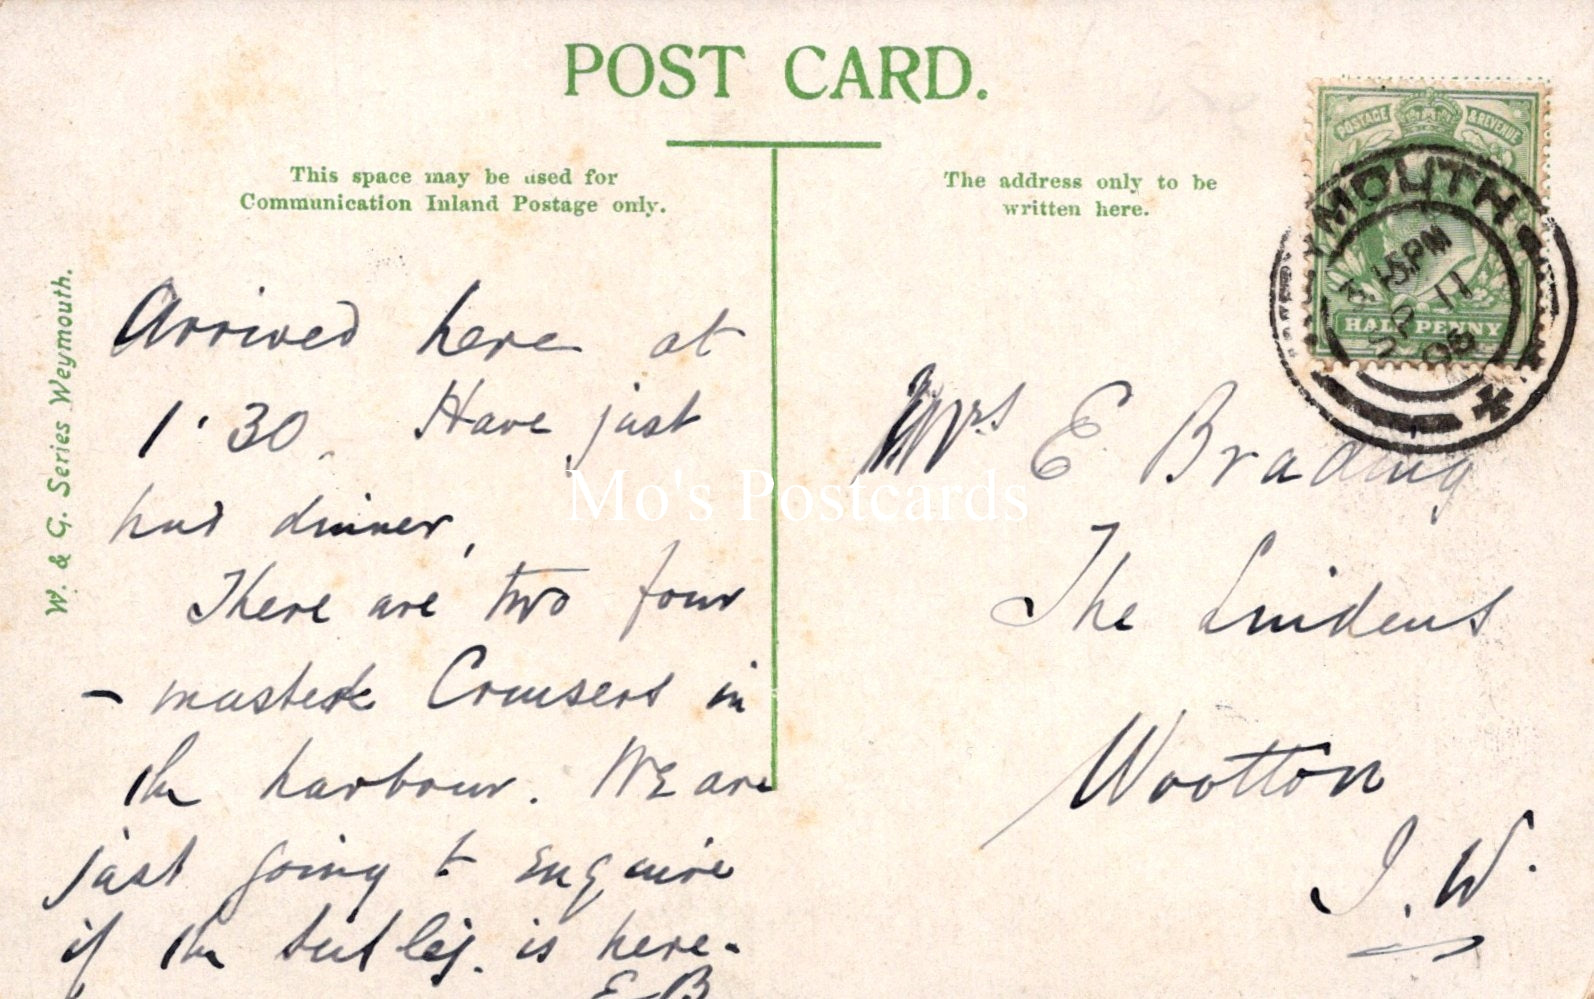 POST CARD.
This space may be used for
Communication Inland Postage only.
The address only to be
written here.
W. & G. Series Weymouth.
POSTAGE & REVENUE
HALFPENNY
YMOUTH
15PM
SP 11
Arrived here at
1.30. Have just
had dinner,
There are two four
- masted Cruisers in
the harbour. We are
just going to enquire
if the is here.
E B
Mrs E Brading
The Lindens
Wootton
I. W.
Mo's Postcards